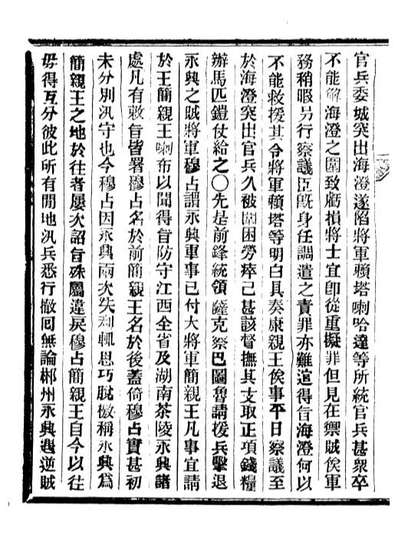 官兵委城突出海澄遂陷將軍賴塔喇哈達等所統官兵甚衆卒
不能解海澄之圍致虧損將士宜卽從重擬罪但見在禦賊俟軍
務稍暇另行察議臣旣身任調遣之責罪亦難逭得旨海澄何以
不能救援其令將軍賴塔等明白具奏康親王俟事平日察議至
於海澄突出官兵久被圍困勞瘁已甚該督撫其支取正項錢糧
辦馬匹鎧仗給之〇先是前鋒統領薩克察巴圖魯請援兵擊退
永興之賊將軍穆占謂永興軍事已付大將軍簡親王凡事宜請
於王簡親王喇布以聞得旨防守江西全省及湖南茶陵永興諸
處凡有敕旨皆署穆占名於前簡親王名於後蓋倚穆占實甚初
未分別汛守也今穆占因永興兩次失利輒思巧脫檄稱永興爲
簡親王之地於往者屢次詔旨殊屬違戾穆占簡親王自今以往
毋得互分彼此所有閒地汛兵悉行撤回無論郴州永興遇逆賊